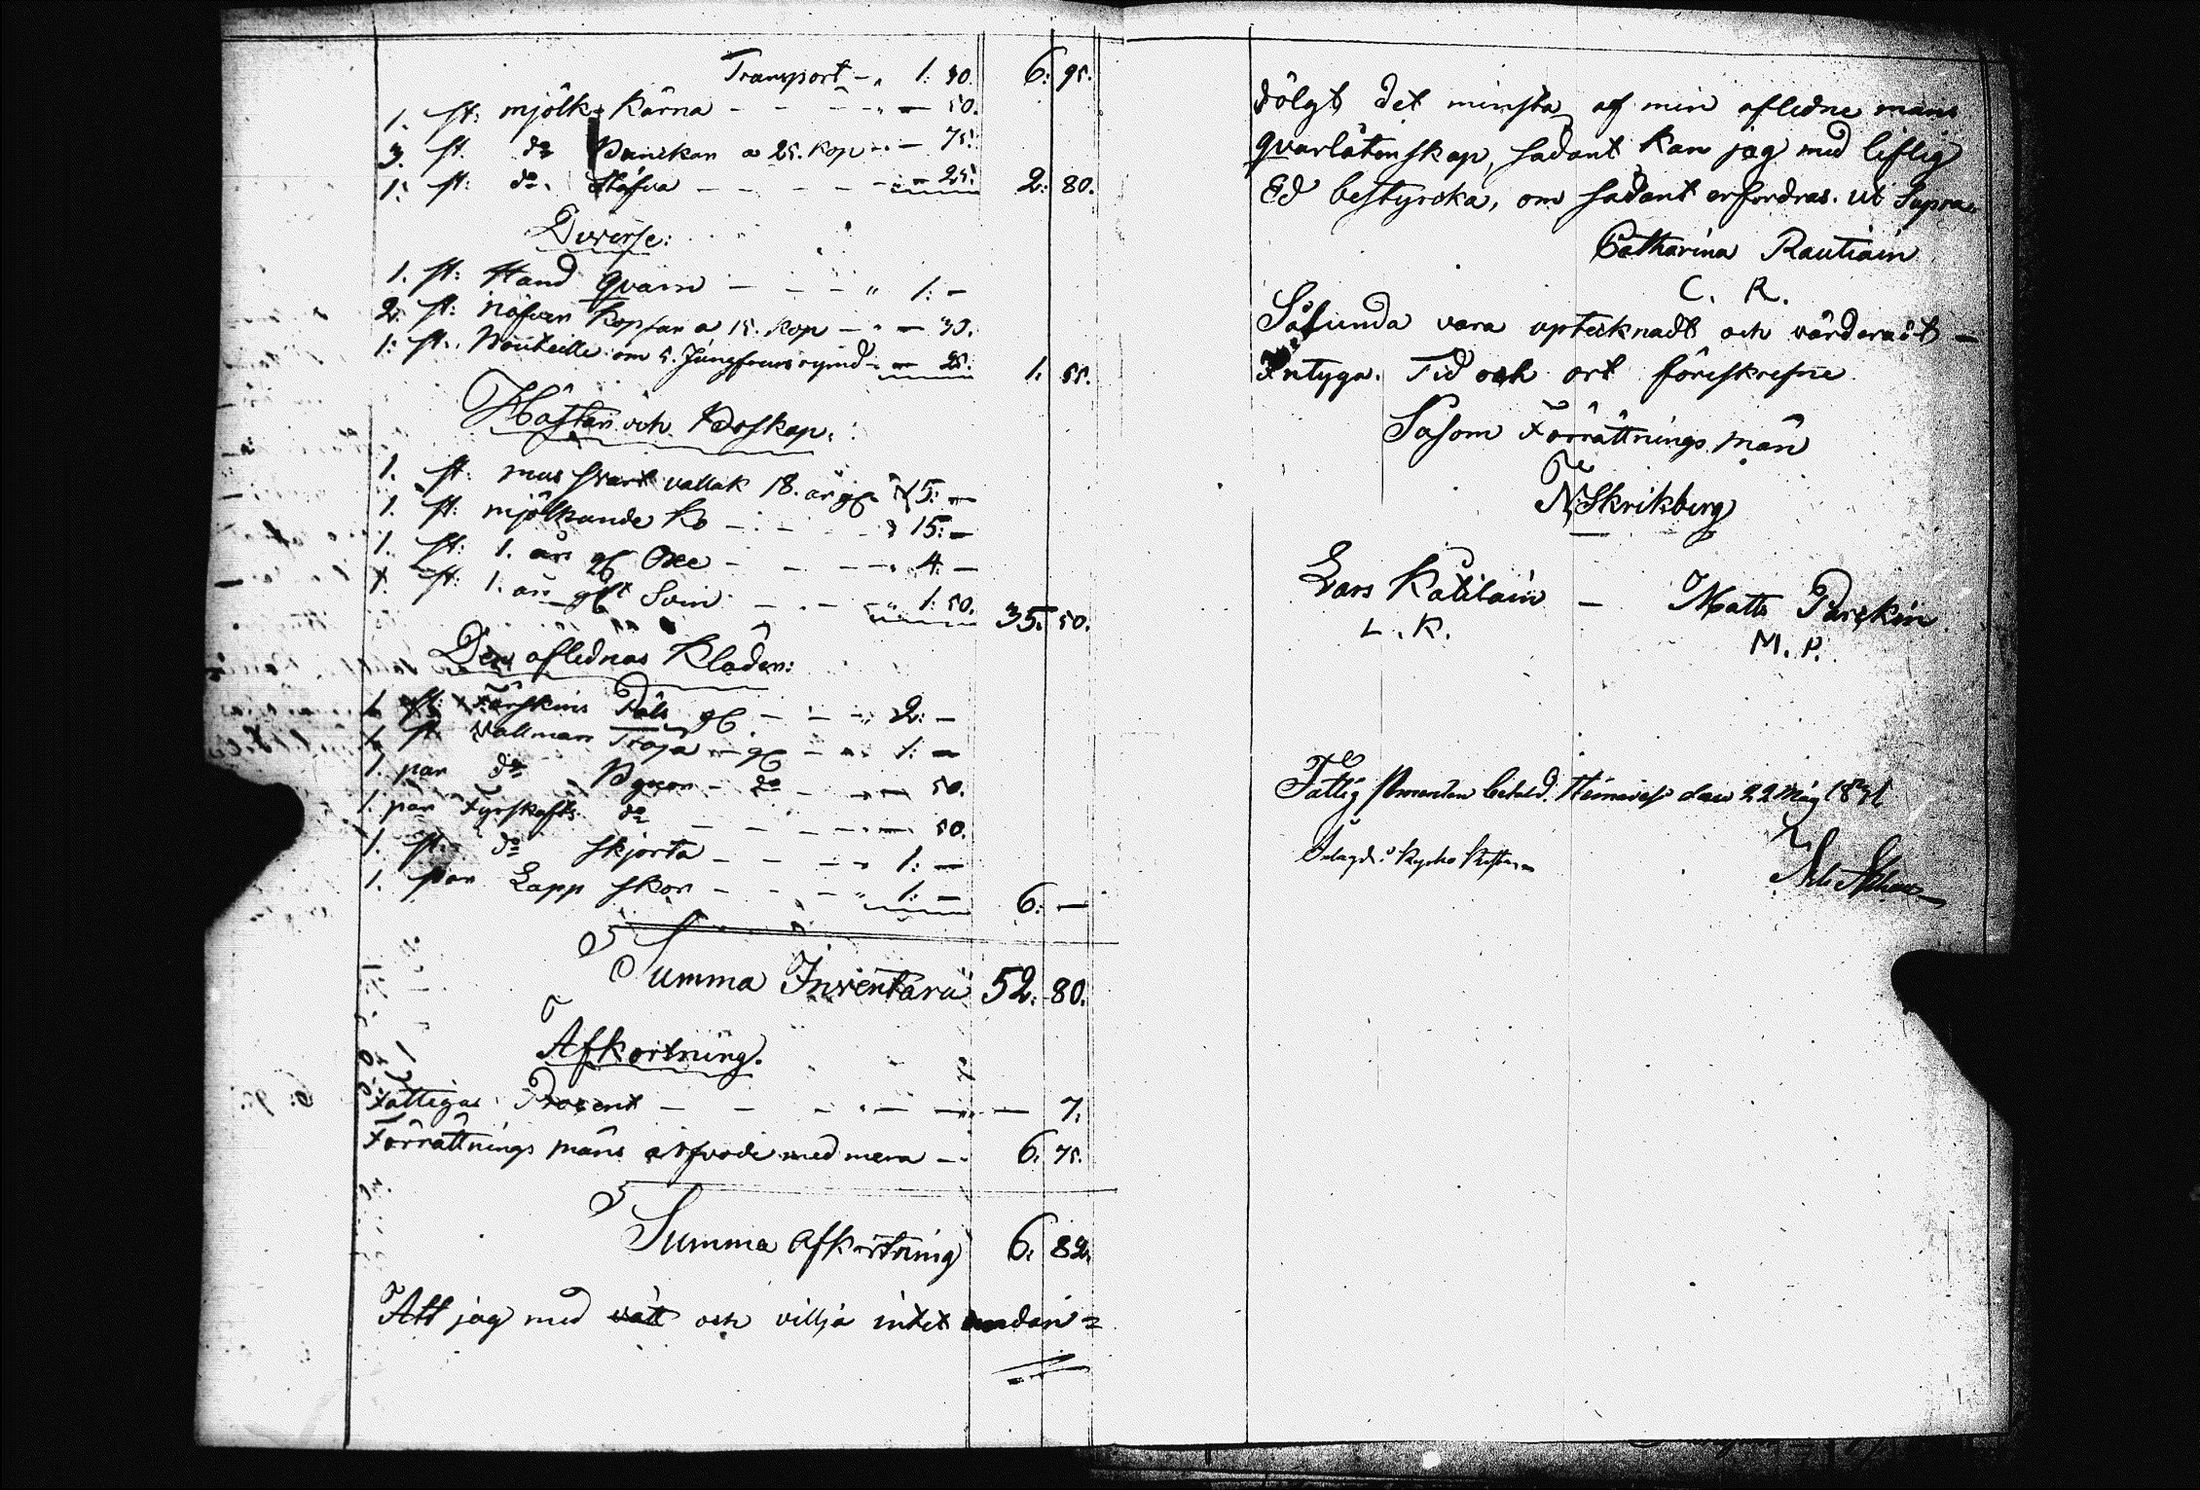 Transport - " 1: 30. 6: 95.
1. st: mjölk kärna - - - " - 50.
3. st. do Bunckar a 25. kop - " - 75.
1: st: do. Stäfva - - - - 25: 2: 80.
Diverse:
1. st: Hand qvarn - - - " 1: -
2. st: näfver koppar a 15. kop - " - 30.
1: st. Bouteille om 5. Jungfrurs rymd - " - 25. 1. 55.
Hästar och Boskap:
1. st: mus svart vallak 18. år gl 15: -
1. st: mjölkande ko - - - " 15: -
1. st: 1. års gl Oxe - - - " 4: -
1. st: 1. års gl Svin - - - " 1: 50. 35. 50.
Den aflednas Kläder:
1. st: Fårskins Päls gl - - " 2: -
1. st. Vallmans Tröja - gl - " 1: -
1. par do Byxor - do - " - 50.
1. par Fyrskafts do - - - " - 50.
1. st. do skjorta - - - " 1: -
1. par Lapp skor - - - " 1: - 6: -
Summa Inventarii 52: 80.
Afkortning.
Fattigas Procent - - - " - - 7.
Förrättnings mäns arfvode med mera - 6. 75.
Summa Afkortning 6: 82.
Att jag med vätt och villja intet undan=
dölgt det minsta af min afledne mans
qvarlåtenskap, sådant kan jag med liflig
Ed bestyrcka, om sådant erfordras. ut Supra.
Catharina Rautiain
C. R.
Sålunda vara uptecknadt och värderadt -
Intyga. Tid och ort föreskrefne
Såsom Förrättnings män
N. Skrikberg
Lars Katilain - Matts Parckin
L. K. M. P.
Fattig Procenten betald. den 22 Maj 1831